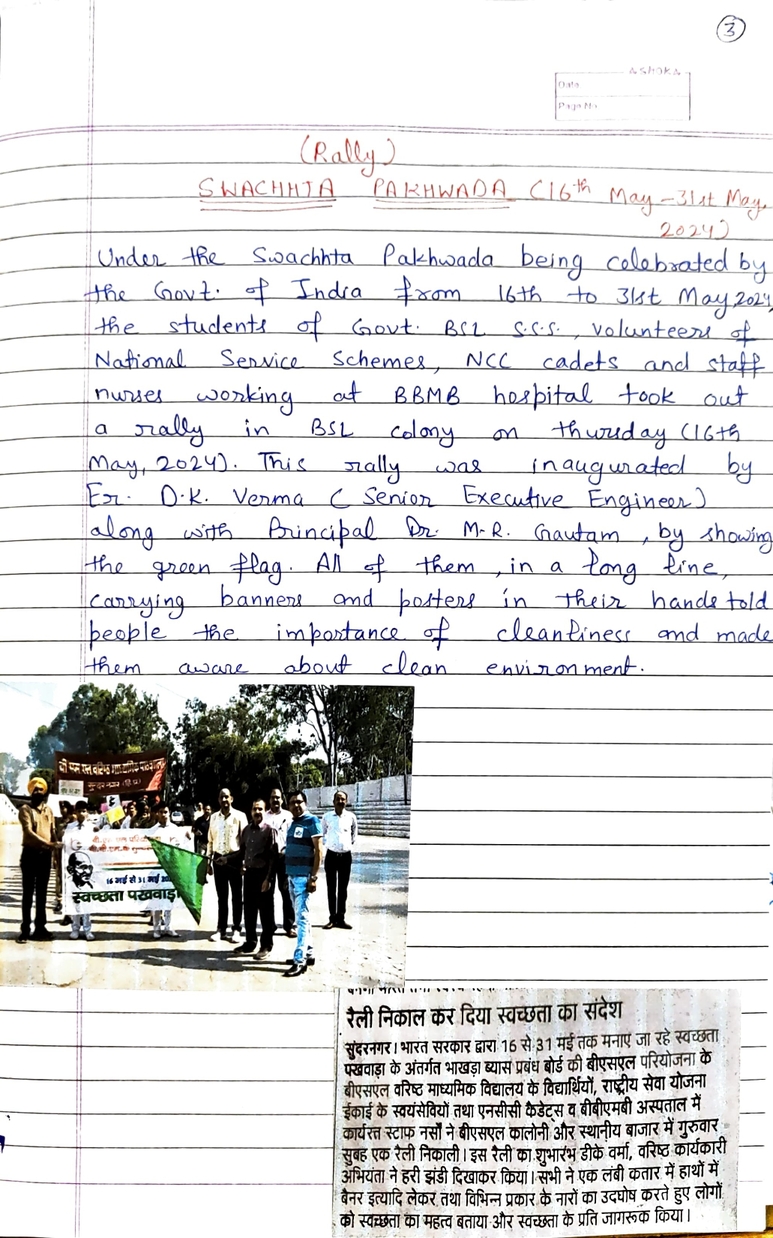 3
ASHOKA
Date
Page No
(Rally)
SWACHHTA PAKHWADA (16th May-31st May,
2024)
Under the Swachhta Pakhwada being celebrated by
the Govt. of India from 16th to 31st May, 2024,
the students of Govt. BSL S.S.S., volunteers of
National Service Schemes, NCC cadets and staff
nurses working at BBMB hospital took out
a rally in BSL colony on thursday (16th
May, 2024). This rally was inaugurated by
Er. D.K. Verma (Senior Executive Engineer)
along with Principal Dr. M.R. Gautam, by showing
the green flag. All of them, in a long line,
carrying banners and posters in their hands told
people the importance of cleanliness and made
them aware about clean environment.
बी एस एल वरिष्ठ माध्यमिक विद्यालय
सुन्दर नगर (हि.प्र.)
16 मई से 31 मई
स्वच्छता पखवाड़ा
रैली निकाल कर दिया स्वच्छता का संदेश
सुंदरनगर। भारत सरकार द्वारा 16 से 31 मई तक मनाए जा रहे स्वच्छता
पखवाड़ा के अंतर्गत भाखड़ा ब्यास प्रबंध बोर्ड की बीएसएल परियोजना के
बीएसएल वरिष्ठ माध्यमिक विद्यालय के विद्यार्थियों, राष्ट्रीय सेवा योजना
ईकाई के स्वयंसेवियों तथा एनसीसी कैडेट्स व बीबीएमबी अस्पताल में
कार्यरत स्टाफ नर्सों ने बीएसएल कालोनी और स्थानीय बाजार में गुरुवार
सुबह एक रैली निकाली। इस रैली का शुभारंभ डीके वर्मा, वरिष्ठ कार्यकारी
अभियंता ने हरी झंडी दिखाकर किया। सभी ने एक लंबी कतार में हाथों में
बैनर इत्यादि लेकर तथा विभिन्न प्रकार के नारों का उदघोष करते हुए लोगों
को स्वच्छता का महत्व बताया और स्वच्छता के प्रति जागरूक किया।